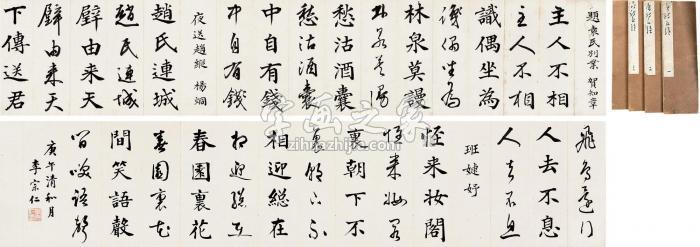 題袁氏別業 賀知章
主人不相
主人不相
識偶坐為
識偶坐為
林泉莫謾
林泉莫謾
愁沽酒囊
愁沽酒囊
中自有錢
中自有錢
夜送趙縱 楊炯
趙氏連城
趙氏連城
璧由來天
璧由來天
下傳送君
人去不息
人去不息
班婕妤
怪來妝閣
怪來妝閣
裏朝下不
裏朝下不
相迎總在
相迎總在
春園裏花
春園裏花
間笑語聲
間笑語聲
庚午清和月
李宗仁
字画之家
zihuazhijia.com